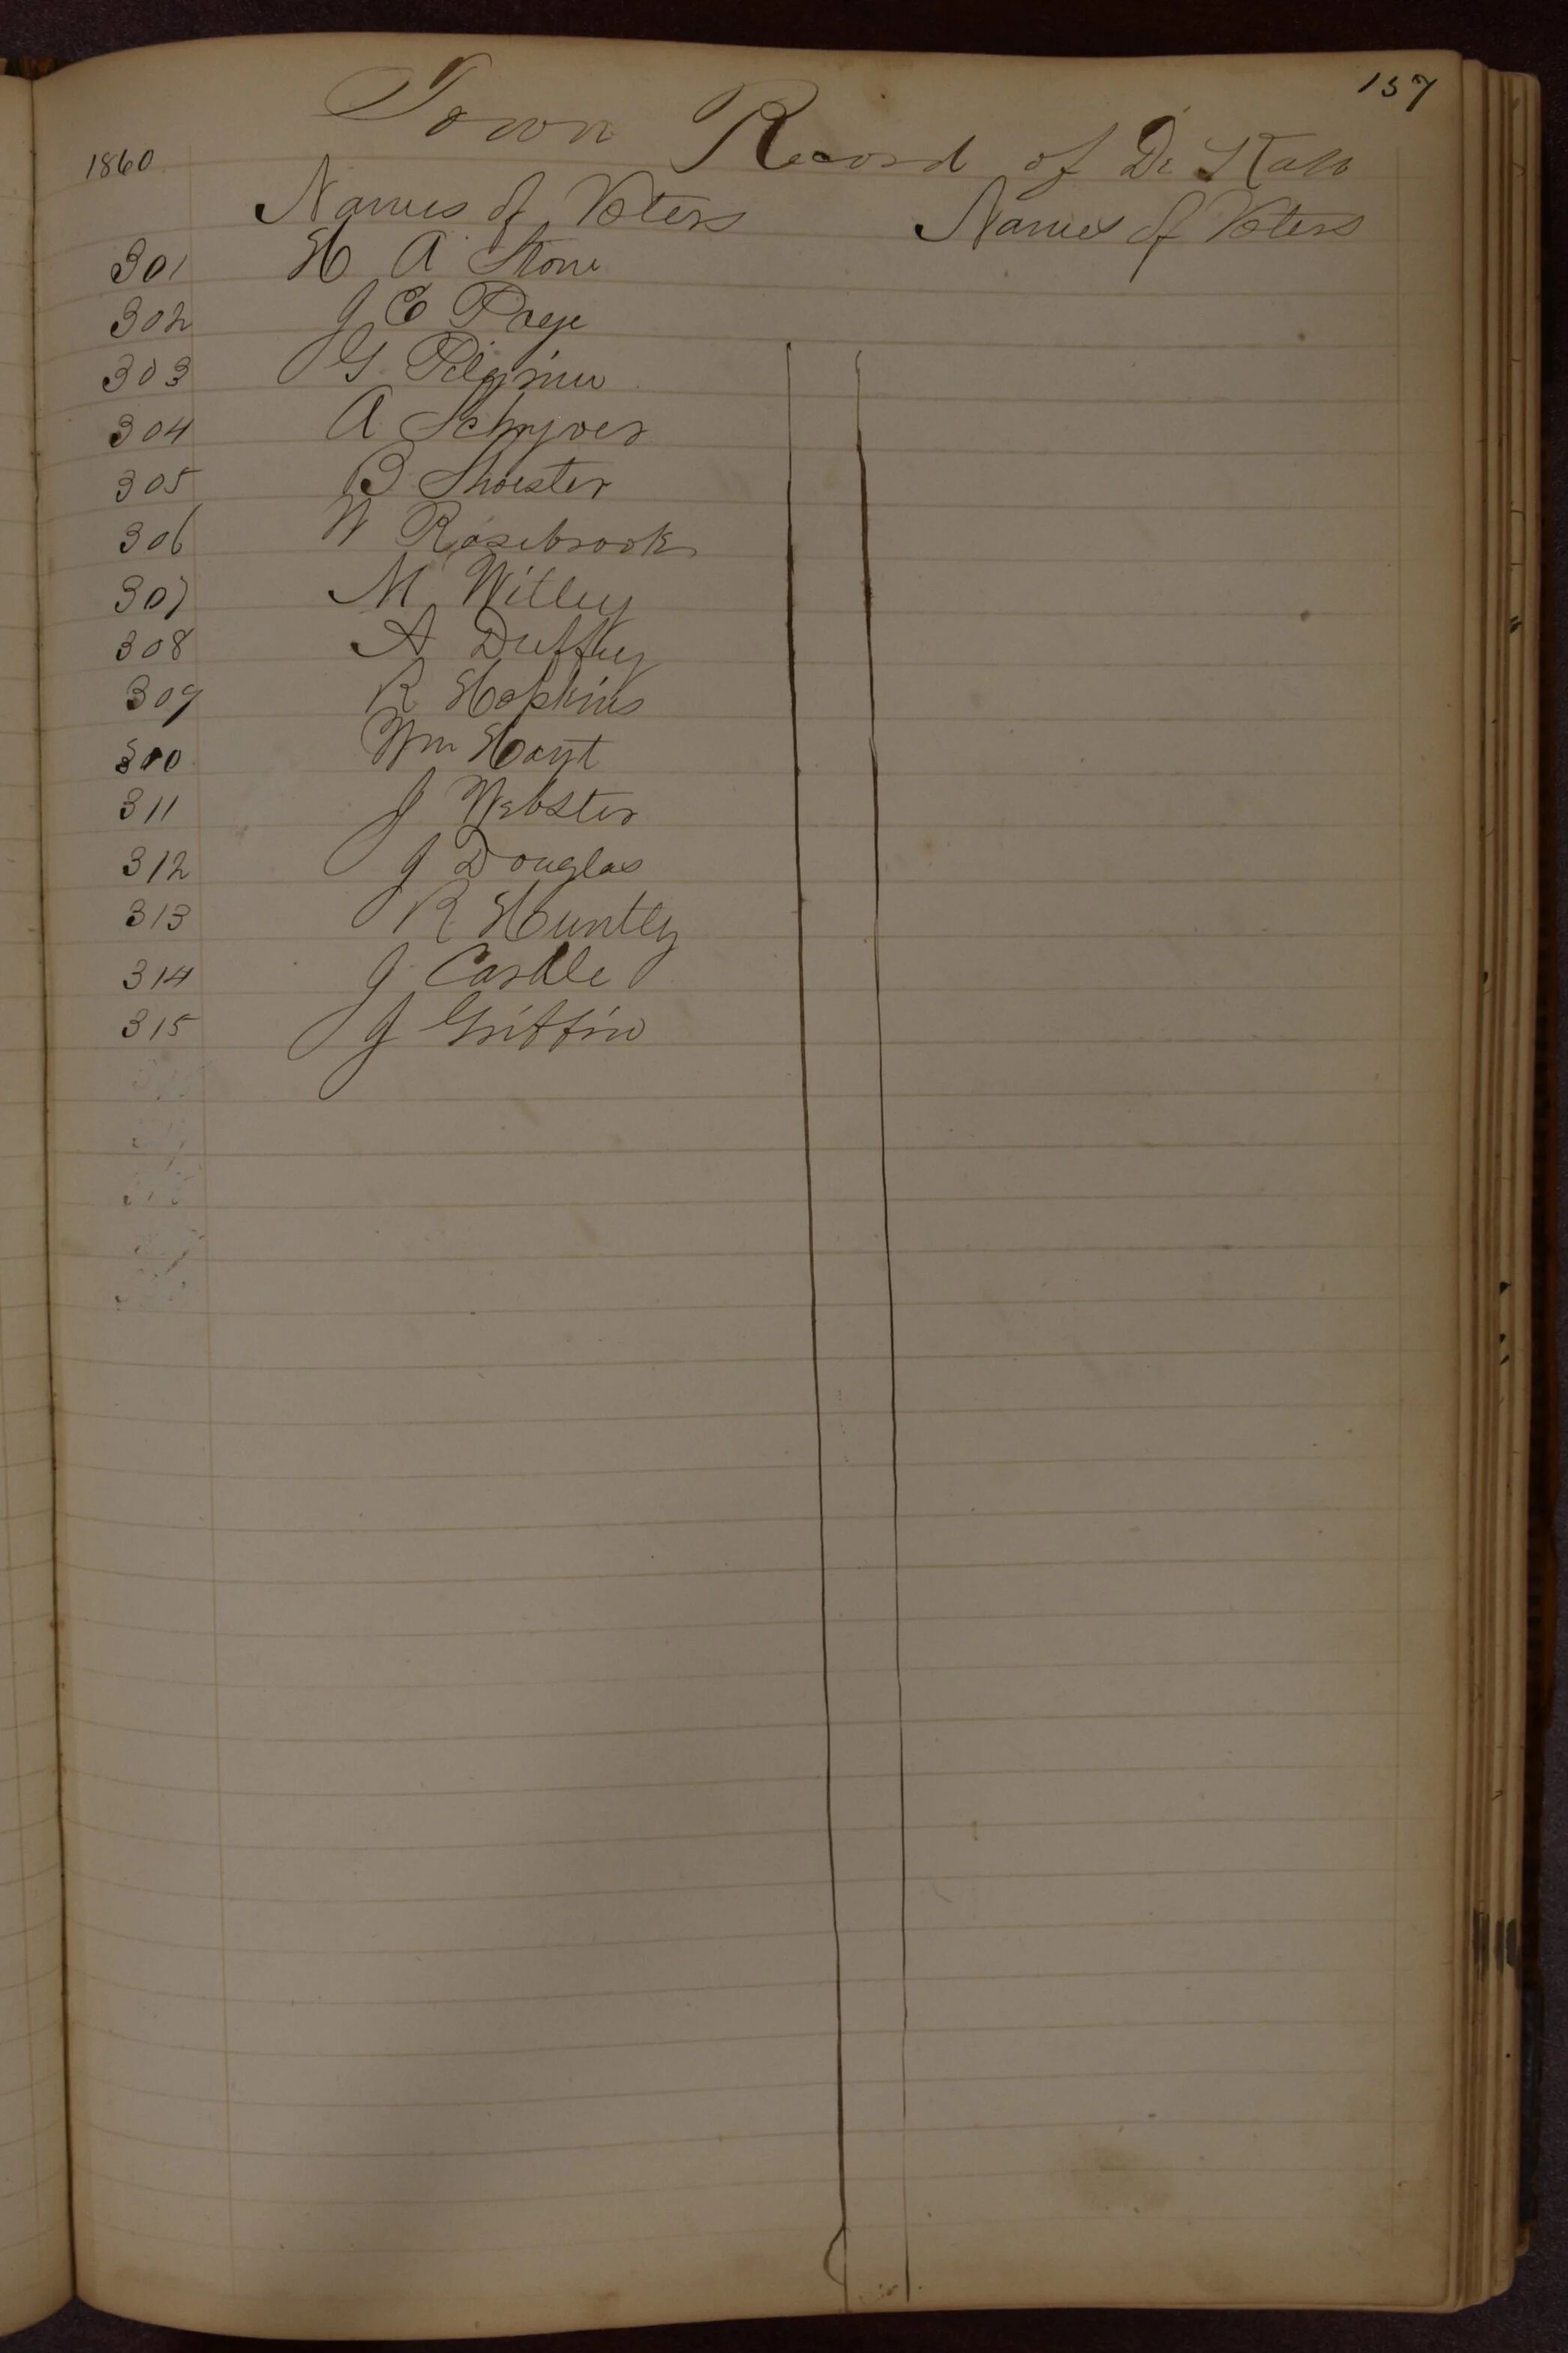 157
Town Record of De Kalb
1860
Names of Voters Names of Voters
301 H A Stone
302 J E Page
303 G Pilgrim
304 A Schryver
305 B Shoester
306 W Rosebrook
307 M Willey
308 A Duffey
309 R Hopkins
310 Wm Hoyt
311 J Webster
312 J Douglas
313 R Huntley
314 J Castle
315 J Griffin